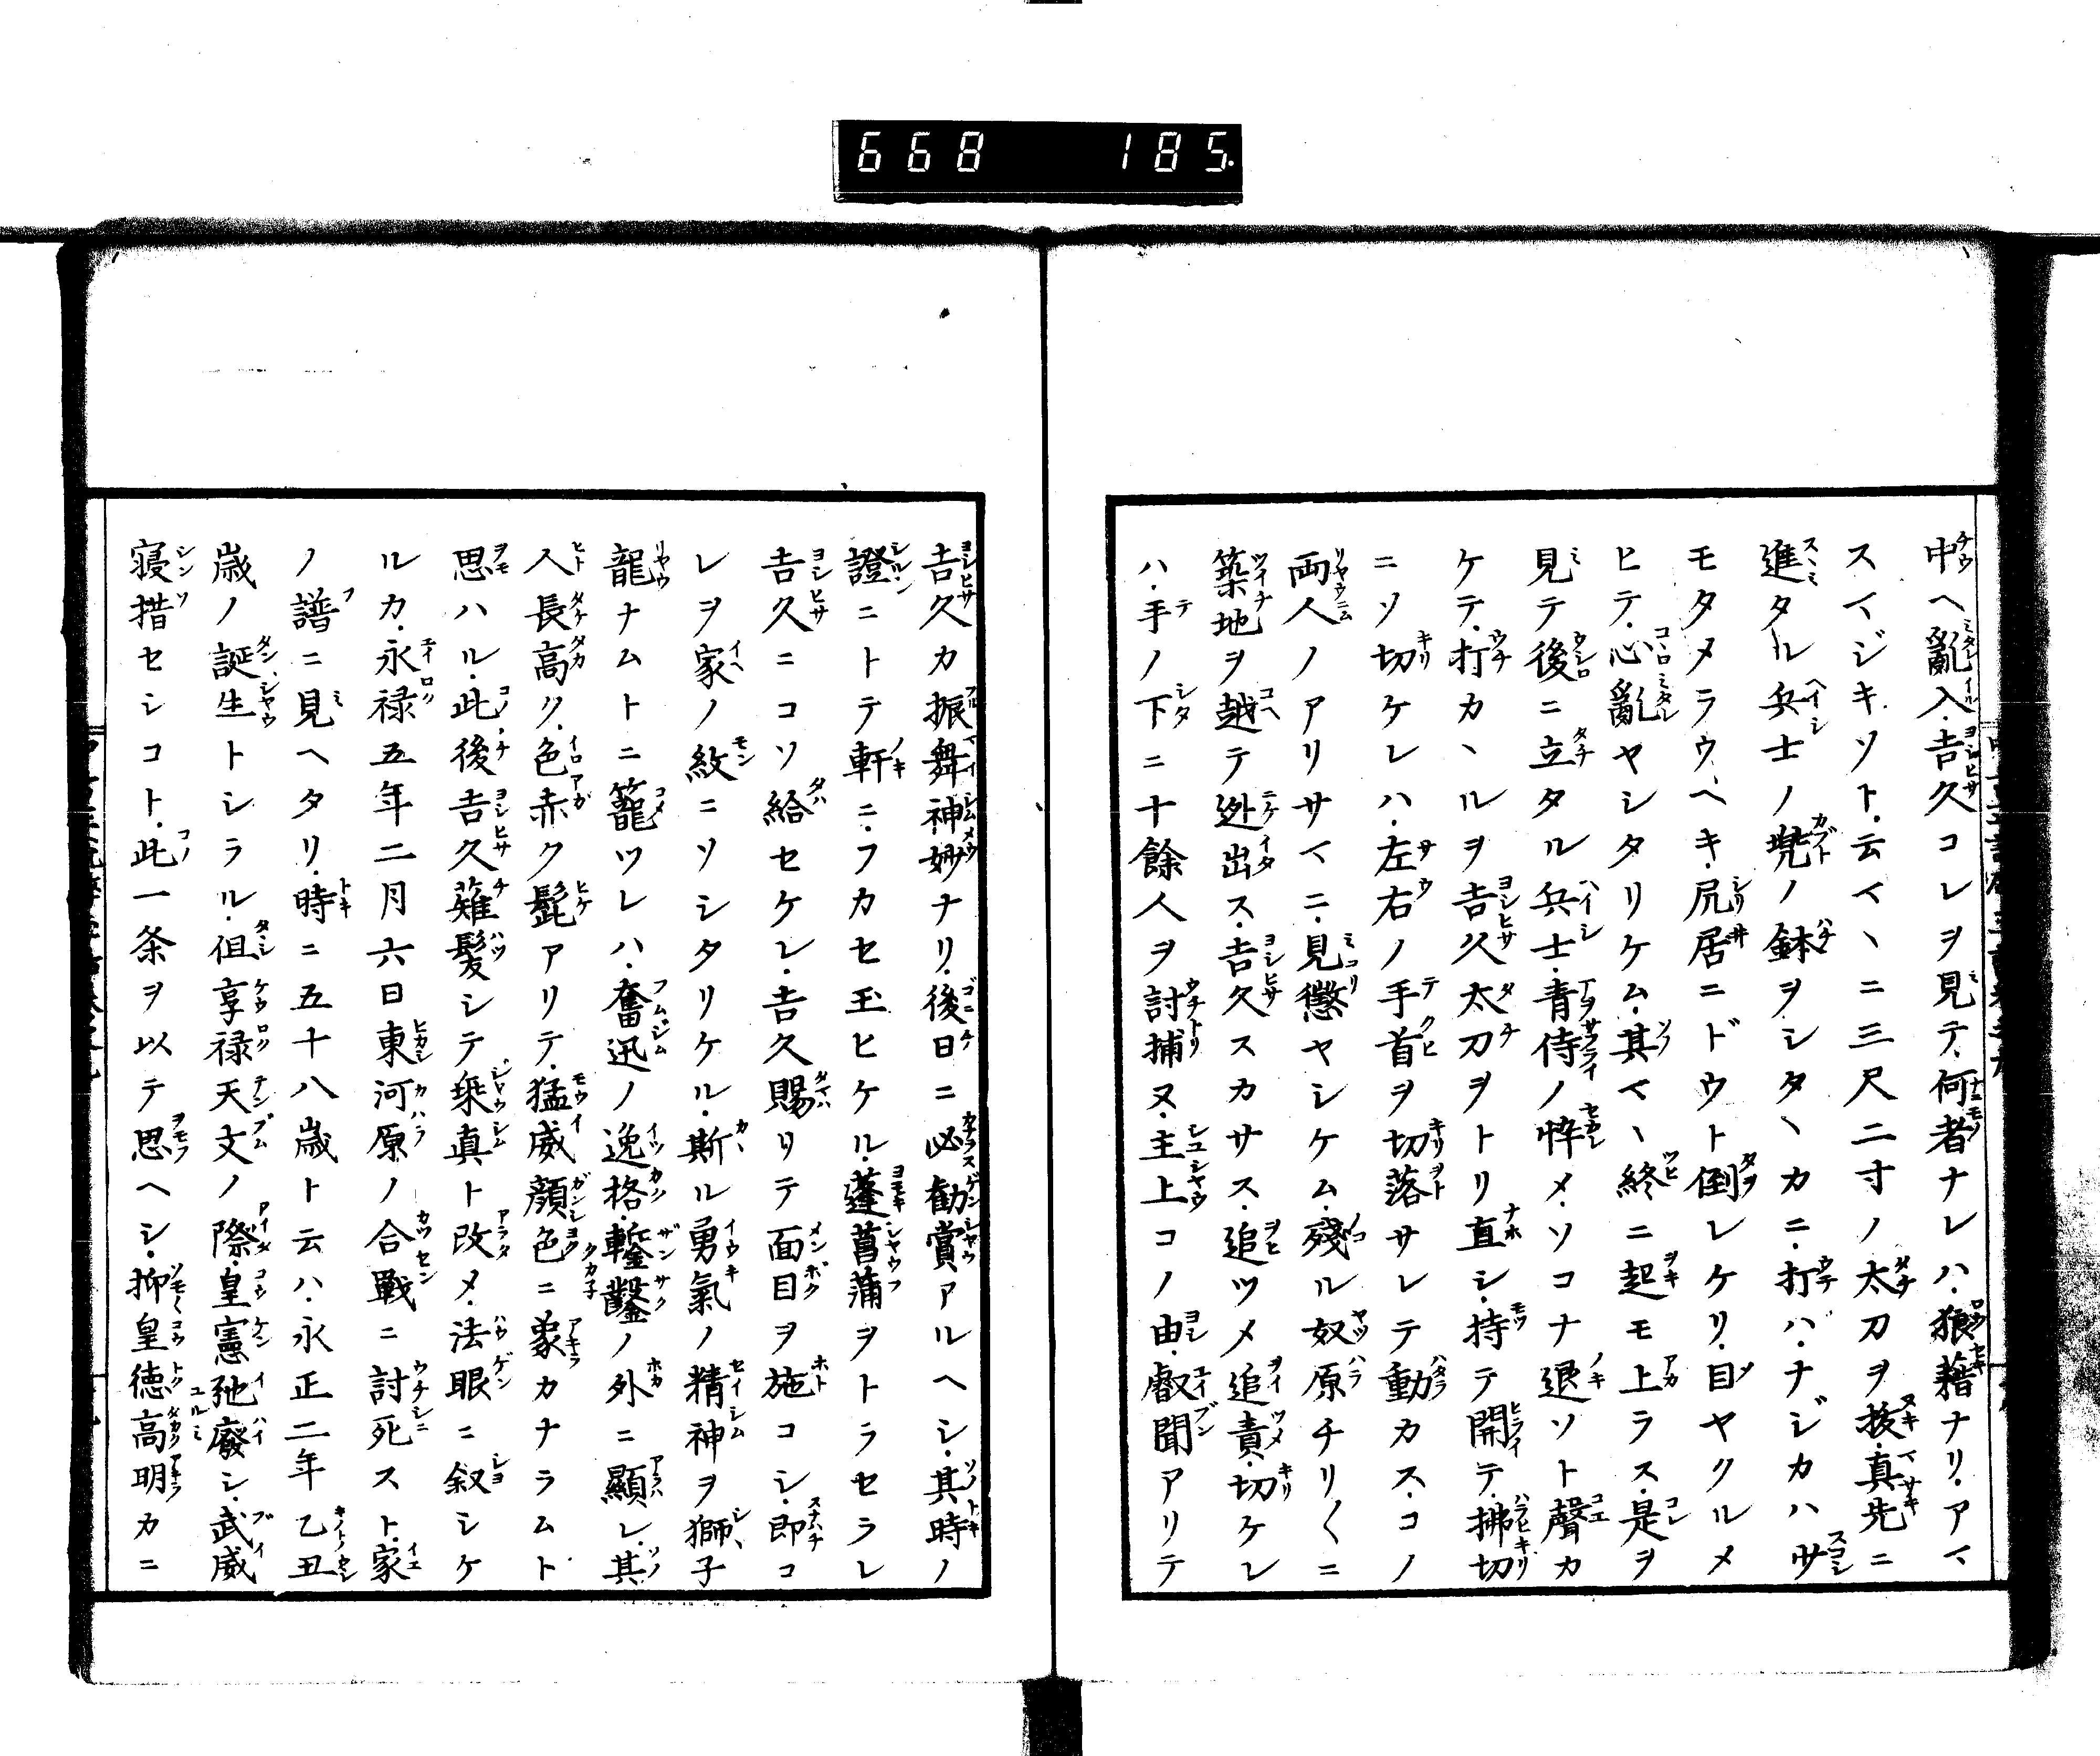 668 185.
中ヘ亂入.吉久コレヲ見テ.何者ナレハ.狼藉ナリ.アマ
スマジキソト.云マヽニ三尺二寸ノ太刀ヲ拔.真先ニ
進タル兵士ノ兠ノ鉢ヲシタヽカニ.打ハ.ナジカハ少
モタメラウヘキ.尻居ニドウト倒レケリ.目ヤクルメ
ヒテ.心亂ヤシタリケム.其マヽ終ニ起モ上ラス.是ヲ
見テ後ニ立タル兵士.青侍ノ悴メ.ソコナ退ソト聲カ
ケテ.打カヽルヲ吉久太刀ヲトリ直シ.持テ開テ.拂切
ニソ切ケレハ.左右ノ手首ヲ切落サレテ動カス.コノ
両人ノアリサマニ.見懲ヤシケム.殘ル奴原チリ〱ニ
築地ヲ越テ迯出ス.吉久スカサス.追ツメ追責.切ケレ
ハ.手ノ下ニ十餘人ヲ討捕ヌ.主上コノ由.叡聞アリテ
吉久カ振舞神妙ナリ.後日ニ必勧賞アルヘシ.其時ノ
證ニトテ軒ニ.フカセ玉ヒケル.蓬菖蒲ヲトラセラレ
吉久ニコソ給セケレ.吉久賜リテ面目ヲ施コシ.即コ
レヲ家ノ紋ニソシタリケル.斯ル勇氣ノ精神ヲ獅子
龍ナムトニ籠ツレハ.奮迅ノ逸格.鏨鑿ノ外ニ顯レ.其
人長高ク.色赤ク髭アリテ.猛威顏色ニ象カナラムト
思ハル.此後吉久薙髪シテ乗真ト改メ.法眼ニ叙シケ
ルカ.永禄五年二月六日東河原ノ合戰ニ討死スト.家
ノ譜ニ見ヘタリ.時ニ五十八歳ト云ハ.永正二年乙丑
歳ノ誕生トシラル.徂享禄天文ノ際.皇憲弛廢シ.武威
寝措セシコト.此一条ヲ以テ思ヘシ.抑皇徳高明カニ